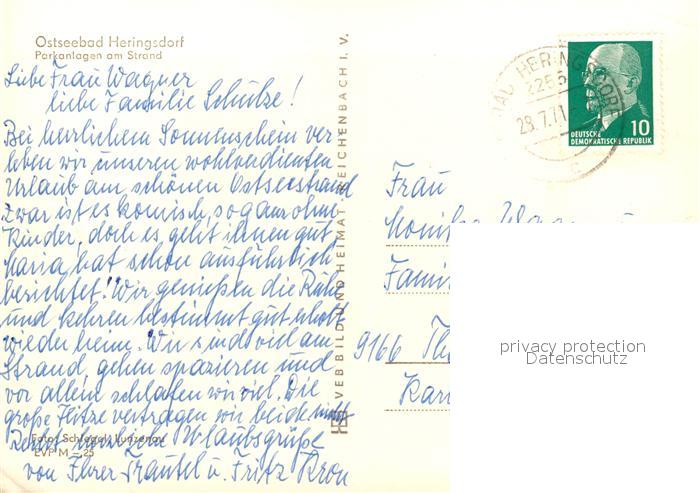 Ostseebad Heringsdorf
Parkanlagen am Strand
Liebe Frau Wagner
liebe Familie Schulze!
Bei herrlichem Sonnenschein ver
leben wir unseren wohlverdienten
Urlaub am schönen Ostseestrand
Zwar ist es komisch, so ganz ohne
Kinder, doch es geht ihnen gut,
Maria hat schon ausführlich
berichtet! Wir genießen die Ruhe
und kehren bestimmt gut erholt
wieder heim. Wir sind viel am
Strand, gehen spazieren und
vor allem schlafen wir viel. Die
große Hitze vertragen wir beide nicht
herzliche Urlaubsgrüße
von Ihrer Trautel u. Fritz
Foto: Schlegel, Lunzenau
EVP M –.25
VEB BILD UND HEIMAT REICHENBACH I. V.
HERINGSDORF
2255
28.7.71
c
10
DEUTSCHE
DEMOKRATISCHE REPUBLIK
Frau
Monika
Famil
9166 Th
Kar
privacy protection
Datenschutz